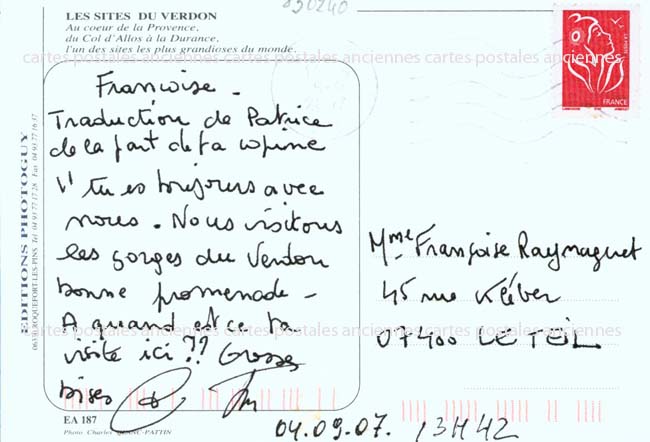 090240
LES SITES DU VERDON
Au coeur de la Provence,
du Col d'Allos à la Durance,
l'un des sites les plus grandioses du monde.
cartes postales anciennes cartes postales anciennes cartes postales anciennes
LA POSTE
FRANCE
EDITIONS PHOTOGUY
06330 ROQUEFORT-LES-PINS Tel 04 93 77 17 28 Fax 04 93 77 16 37
Françoise -
Traduction de Patrice
de la part de ta copine
"tu es toujours avec
nous. Nous visitons
les gorges du Verdon
bonne promenade -
A quand est ce ta
visite ici ?? Grosses
bises
Mme Françoise Raymaguet
45 rue Kléber
07400 LE TEIL
cartes postales anciennes cartes postales anciennes cartes postales anciennes
EA 187
Photo Charles PATTIN
04.09.07. 13H42